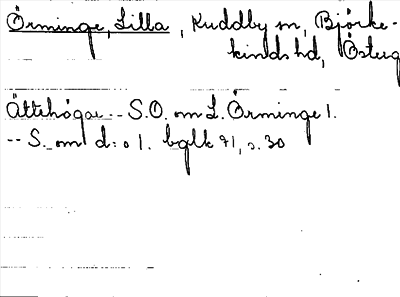 Örminge, Lilla, Kuddby sn, Björke-
kinds hd, Österg
Ättehögar -- S.O. om L. Örminge 1.
-- S. om d:o 1. bglk 91, s. 30